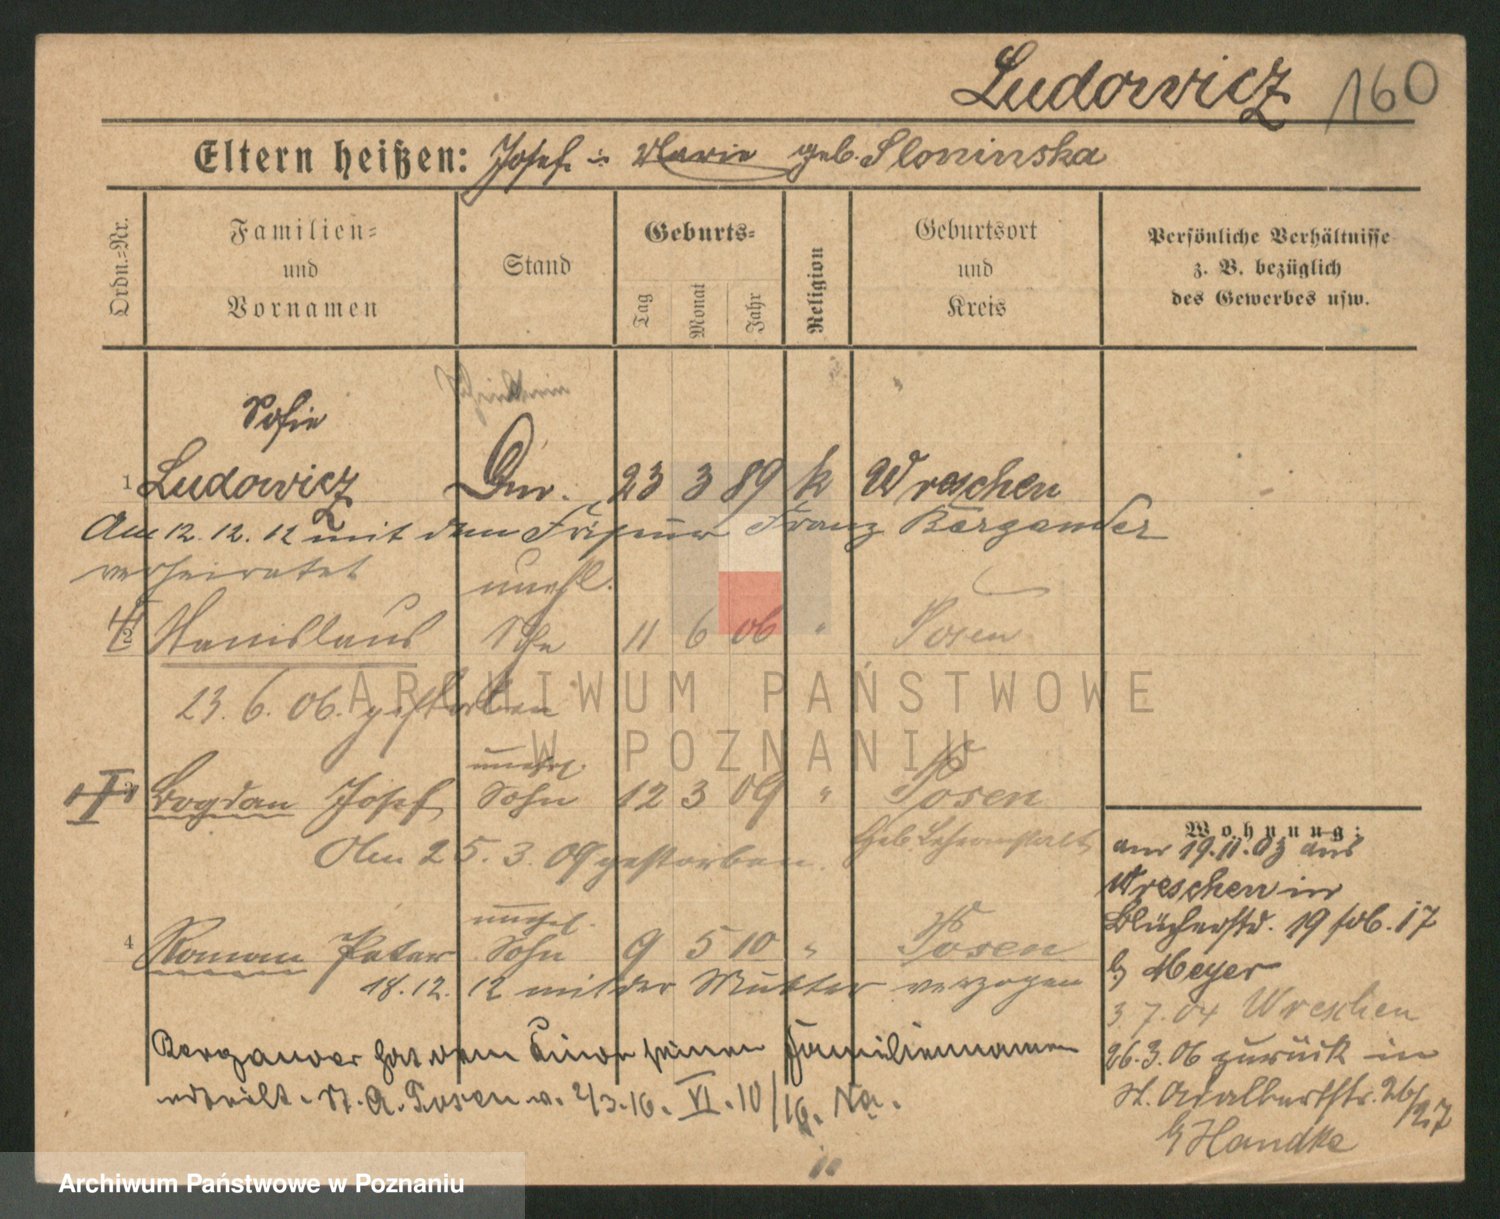 Ludowicz 160
Eltern heißen: Josef u. Marie geb. Sloninska
Ordn.-Nr.
Familien- und Vornamen
Stand
Geburts-
Tag Monat Jahr
Religion
Geburtsort und Kreis
Persönliche Verhältnisse z. B. bezüglich des Gewerbes usw.
Sofie
1 Ludowicz 23 3 89 k Wreschen
Am 12.12.12 mit dem Friseur Franz Bergander
verheiratet
unehl.
2 Stanislaus Sohn 11 6 06 " Posen
23.6.06. gestorben
unehel.
3 Bogdan Josef Sohn 12 3 09 " Posen
Am 25.3.09 gestorben. Heb. Lehranstalt
unehel.
4 Roman Peter Sohn 9 5 10 " Posen
18.12.12 mit der Mutter verzogen
Bergander hat dem Kinde seinen Familiennamen
erteilt. St. A. Posen v. 2/3.16. VI.10/16.
Wohnung:
am 19.11.03 aus
Wreschen in
Blücherstr. 19
b/ Meyer
3.7.04 Wreschen
26.3.06 zurück in
St. Adalbertstr. 26/27
b/ Handke
ARCHIWUM PAŃSTWOWE
W POZNANIU
Archiwum Państwowe w Poznaniu